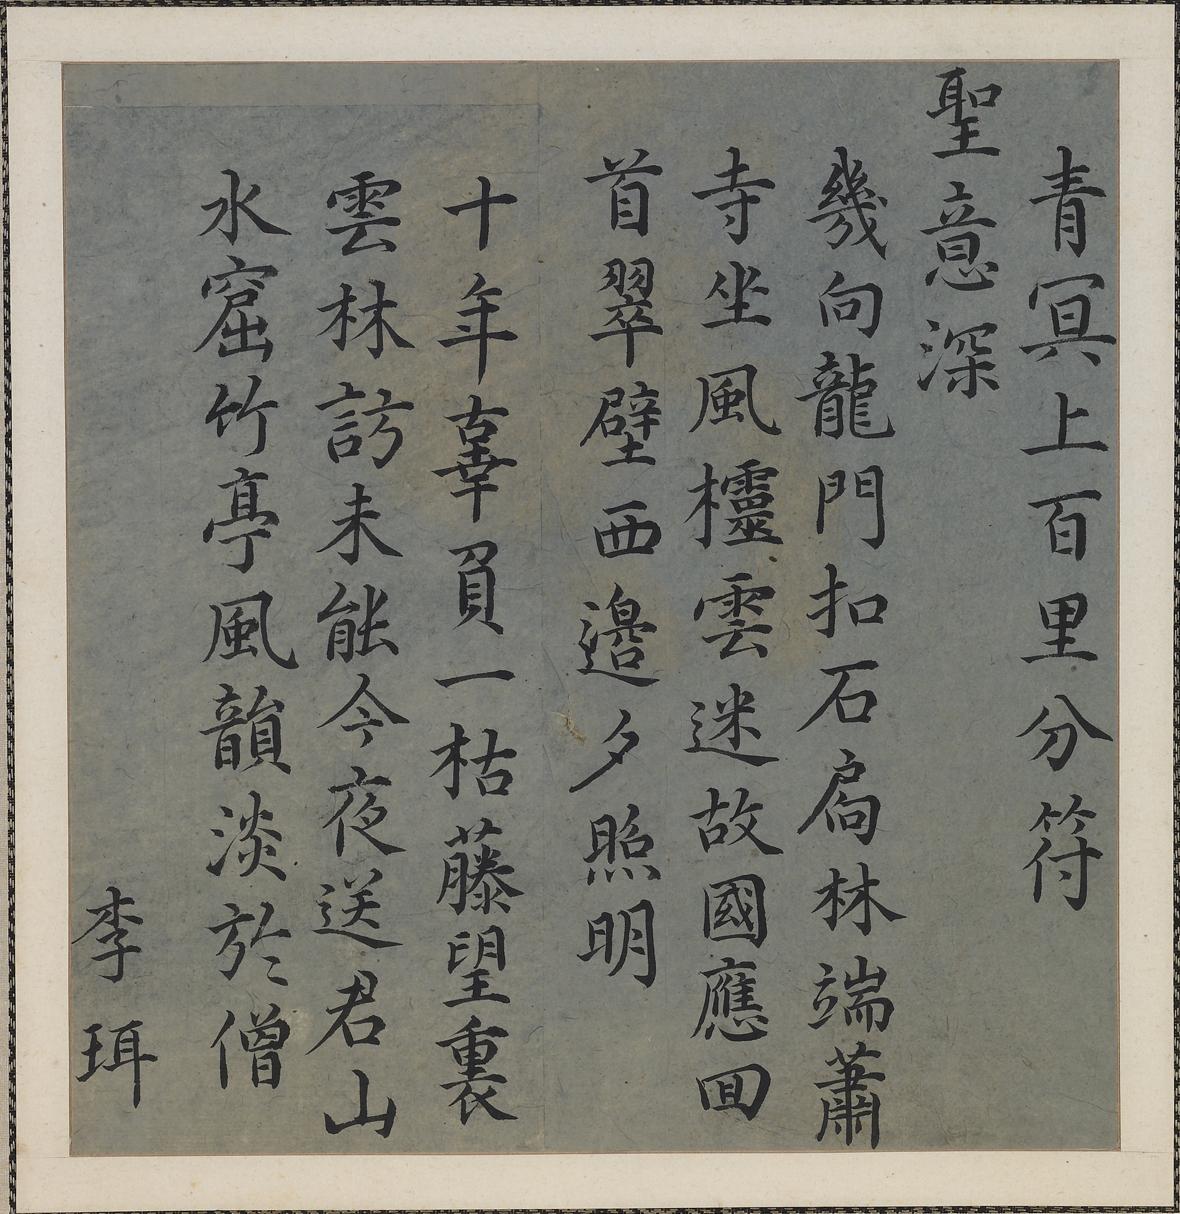 青冥上百里分符
聖意深
幾向龍門扣石扃林端蕭
寺坐風欞雲迷故國應回
首翠壁西邊夕照明
十年辜負一枯藤望裏
雲林訪未能今夜送君山
水窟竹亭風韻淡於僧
李珥